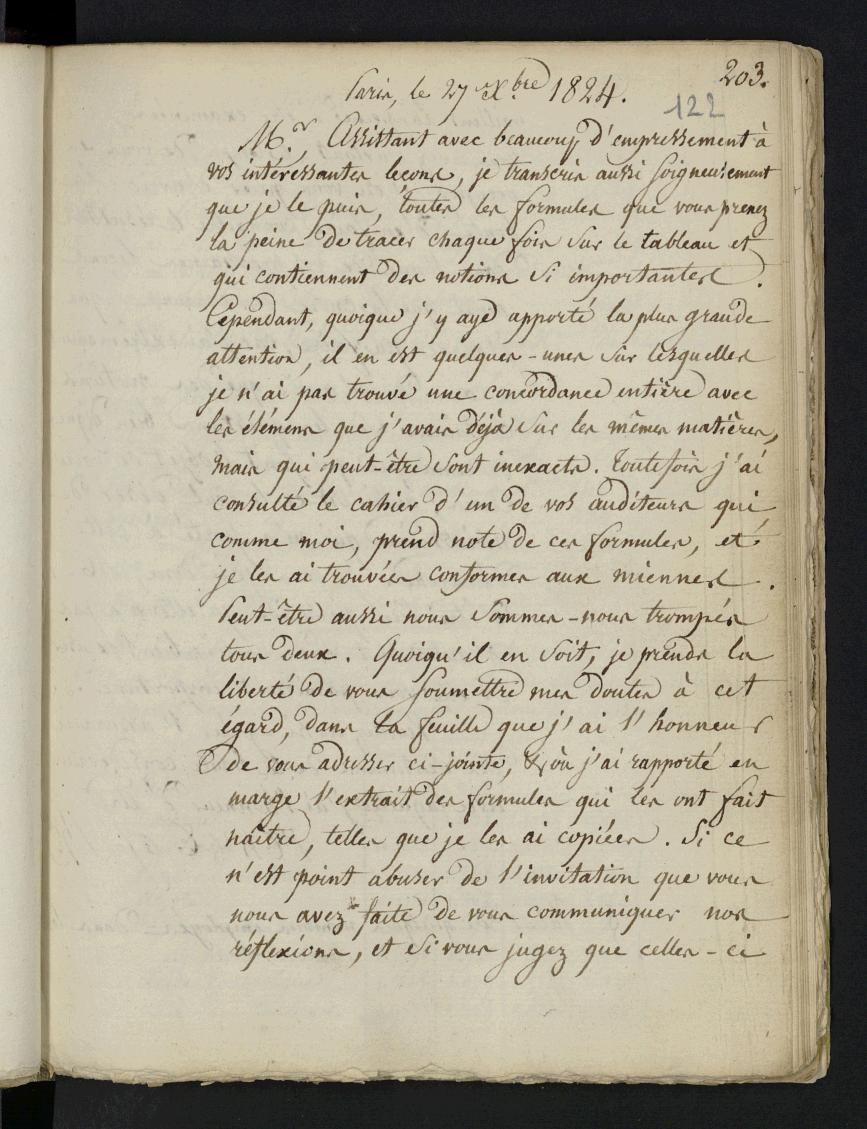 203.
Paris, le 27 Xbre 1824.
122
Mr., Assistant avec beaucoup d'empressement à
vos intéressantes leçons, je transcris aussi soigneusement
que je le puis, toutes les formules que vous prenez
la peine de tracer chaque fois sur le tableau et
qui contiennent des notions si importantes.
Cependant, quoique j'y aye apporté la plus grande
attention, il en est quelques-unes sur lesquelles
je n'ai pas trouvé une concordance entière avec
les élémens que j'avais déjà sur les mêmes matières,
mais qui peut-être sont inexacts. Toutefois j'ai
consulté le cahier d'un de vos auditeurs qui
comme moi, prend note de ces formules, et
je les ai trouvées conformes aux miennes.
Peut-être aussi nous sommes-nous trompés
tous deux. Quoiqu'il en soit, je prends la
liberté de vous soumettre mes doutes à cet
égard, dans la feuille que j'ai l'honneur
de vous adresser ci-jointe, & où j'ai rapporté en
marge l'extrait des formules qui les ont fait
naître, telles que je les ai copiées. Si ce
n'est point abuser de l'invitation que vous
nous avez faite de vous communiquer nos
réflexions, et si vous jugez que celles-ci